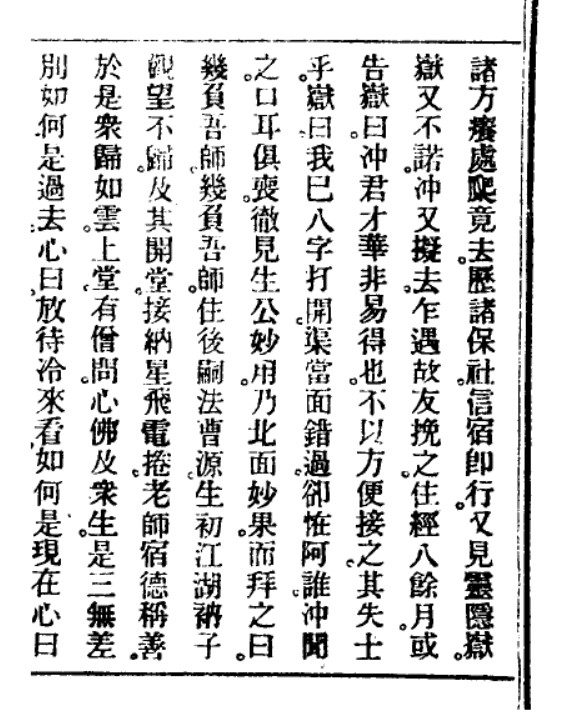 諸方癢處爬竟去。歷諸保社信宿卽行。又見靈隱嶽。
嶽又不諾。沖又擬去。乍遇故友挽之。住經八餘月。或
告嶽曰沖君才華非易得也。不以方便接之。其失士
乎。嶽曰。我已八字打開。渠當面錯過。卻恠阿誰。沖聞
之。口耳俱喪。徹見生公妙用。乃北面妙果。而拜之曰。
幾負吾師。幾負吾師。住後嗣法曹源。生初江湖衲子
觀望不歸。及其開堂。接納星飛電捲。老師宿德稱善。
於是衆歸如雲。上堂。有僧問。心佛及衆生。是三無差
別。如何是過去心。曰。放待冷來看。如何是現在心。曰